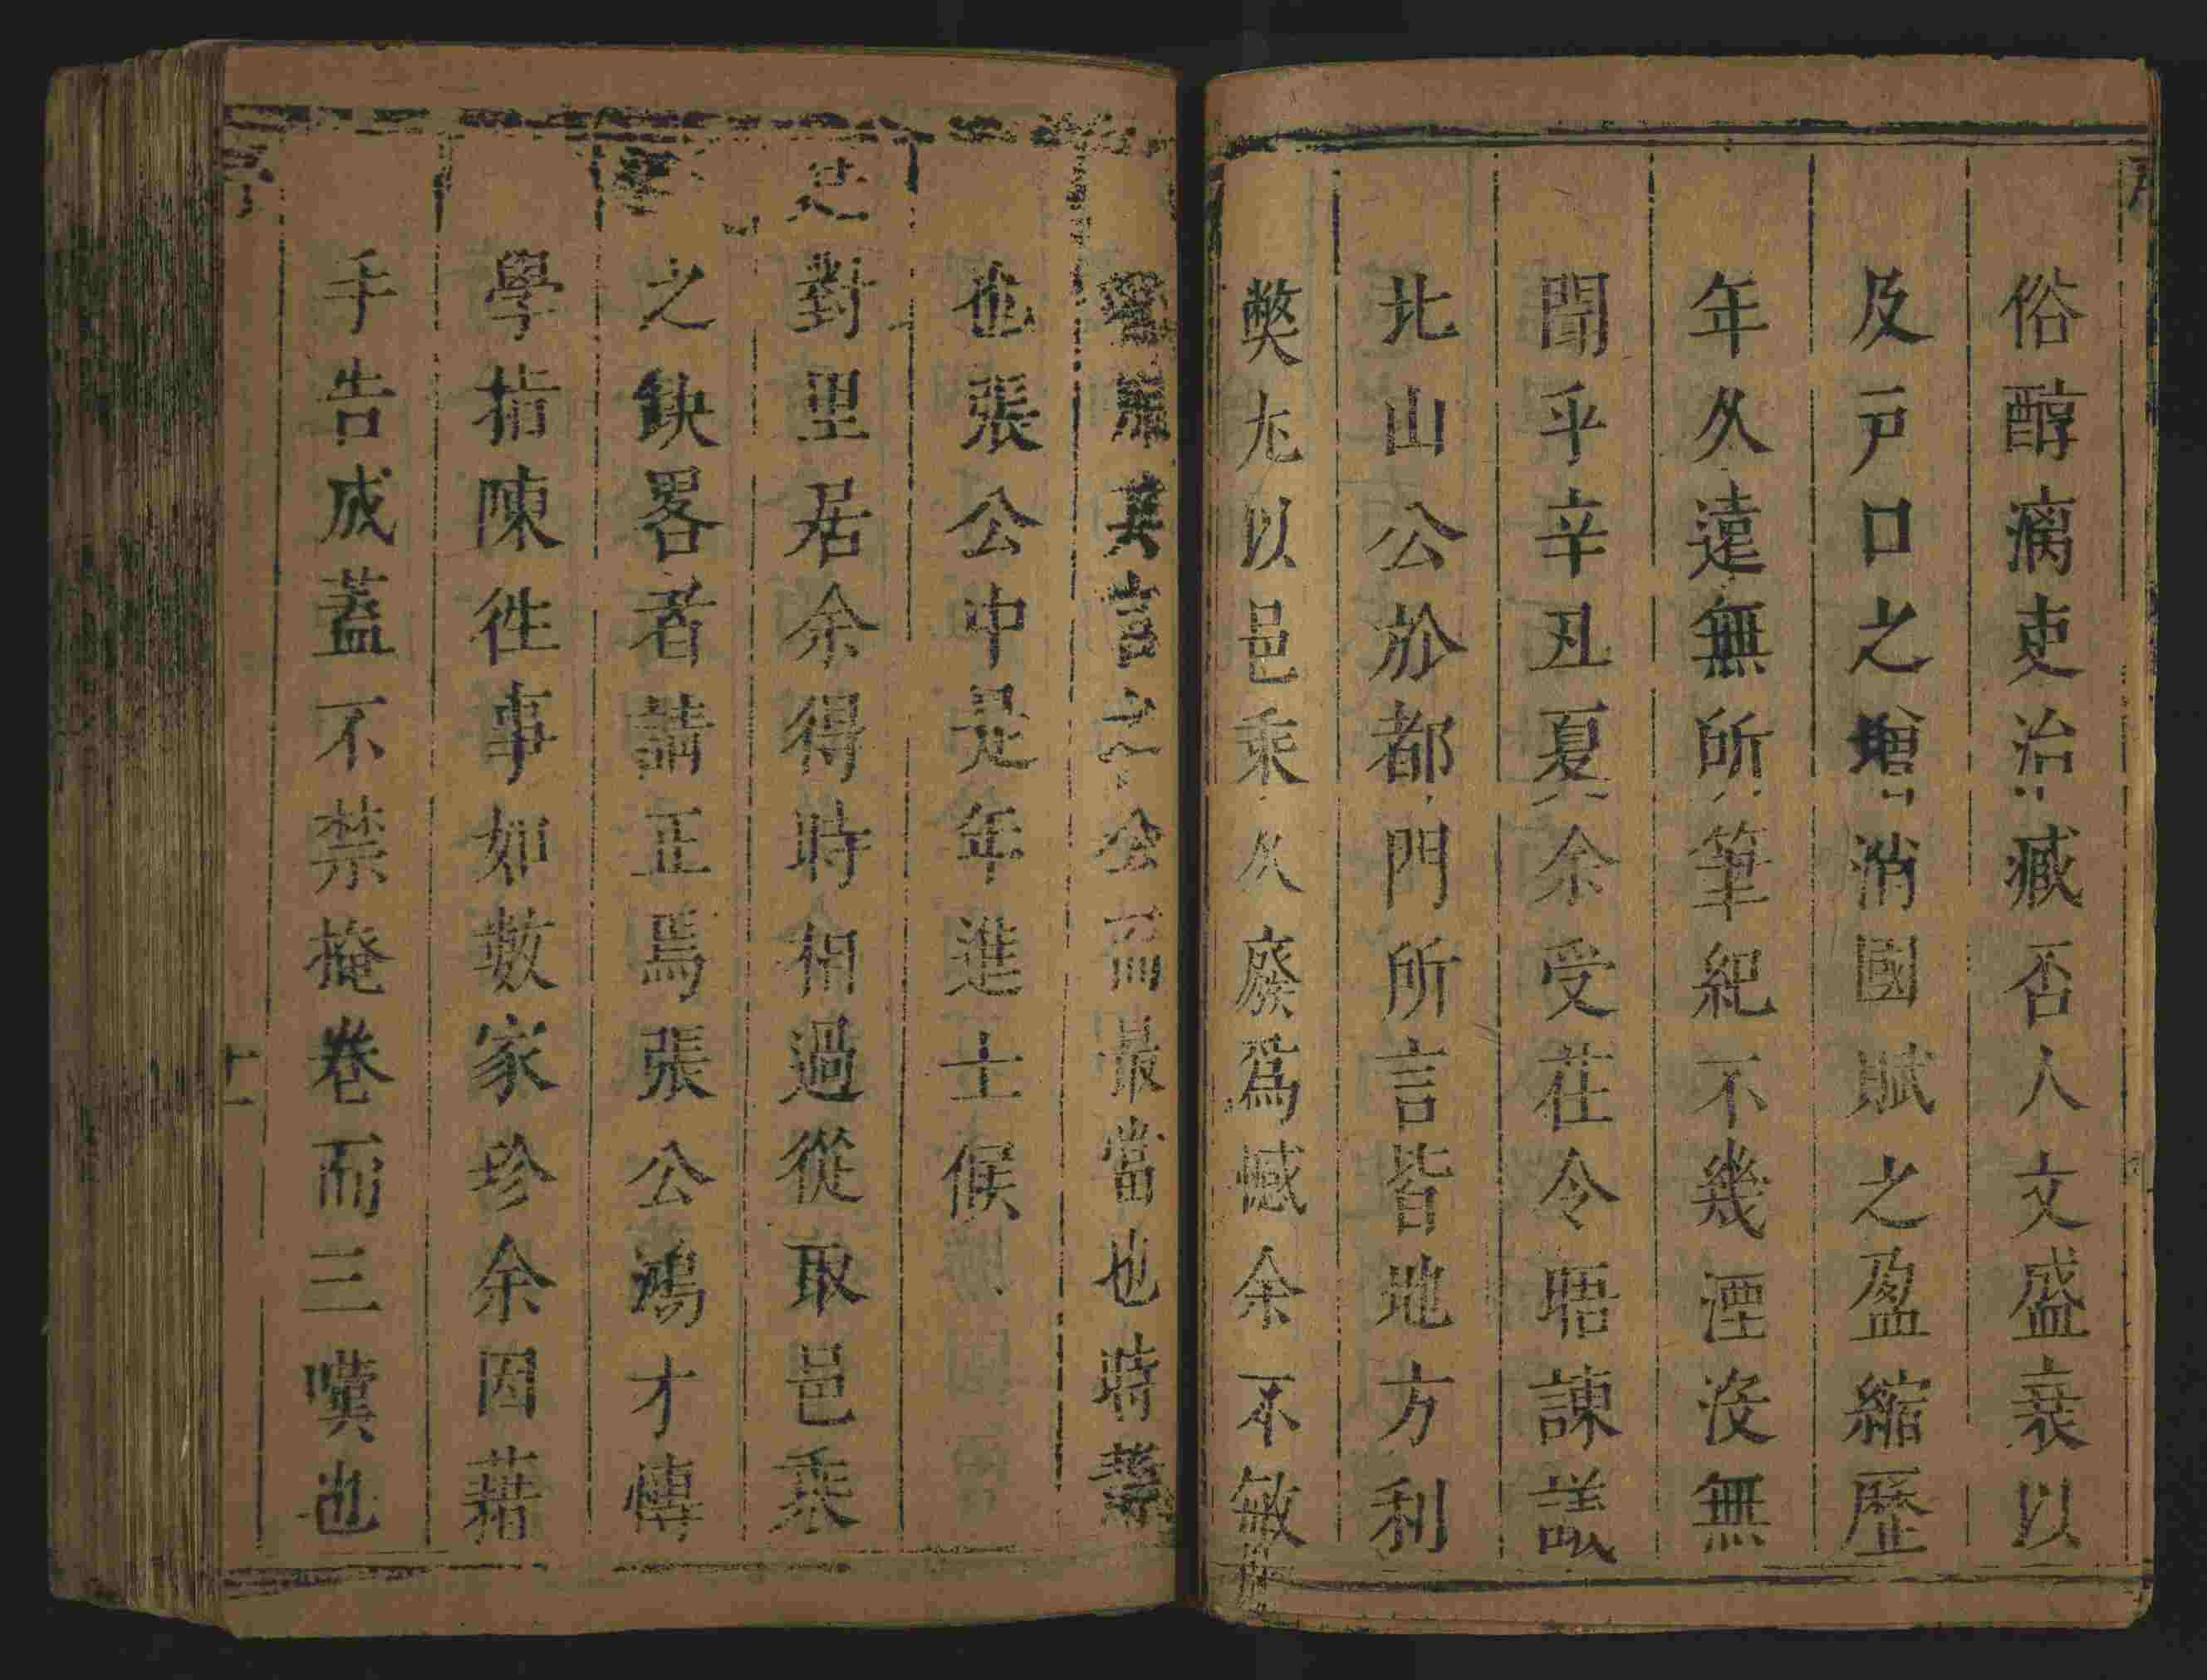 俗醇漓吏治臧否人文盛衰以
及戸口之増消國賦之盈縮歷
年久遠無所筆紀不幾湮沒無
聞乎辛丑夏余受茌令晤諫議
北山公於都門所言皆地方利
獘尢以邑乘久廢爲憾余不敏
其言之公而最當也時
也張公中是年進士候
是對里居余得時相過從取邑乘
之缺畧者請正焉張公鴻才博
學指陳徃事如數家珍余因藉
手告成葢不禁掩卷而三嘆也
十一